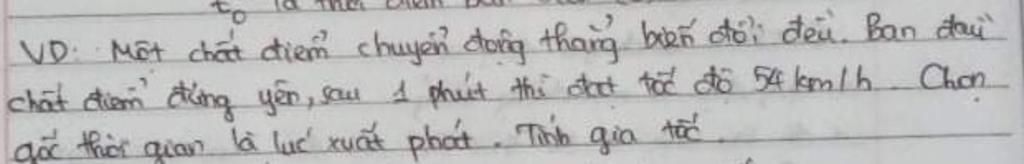 t₀ là thời điểm ban
VD: Một chất điểm chuyển động thẳng biến đổi đều. Ban đầu
chất điểm đứng yên, sau 1 phút thì đạt tốc độ 54 km/h. Chọn
gốc thời gian là lúc xuất phát. Tính gia tốc.